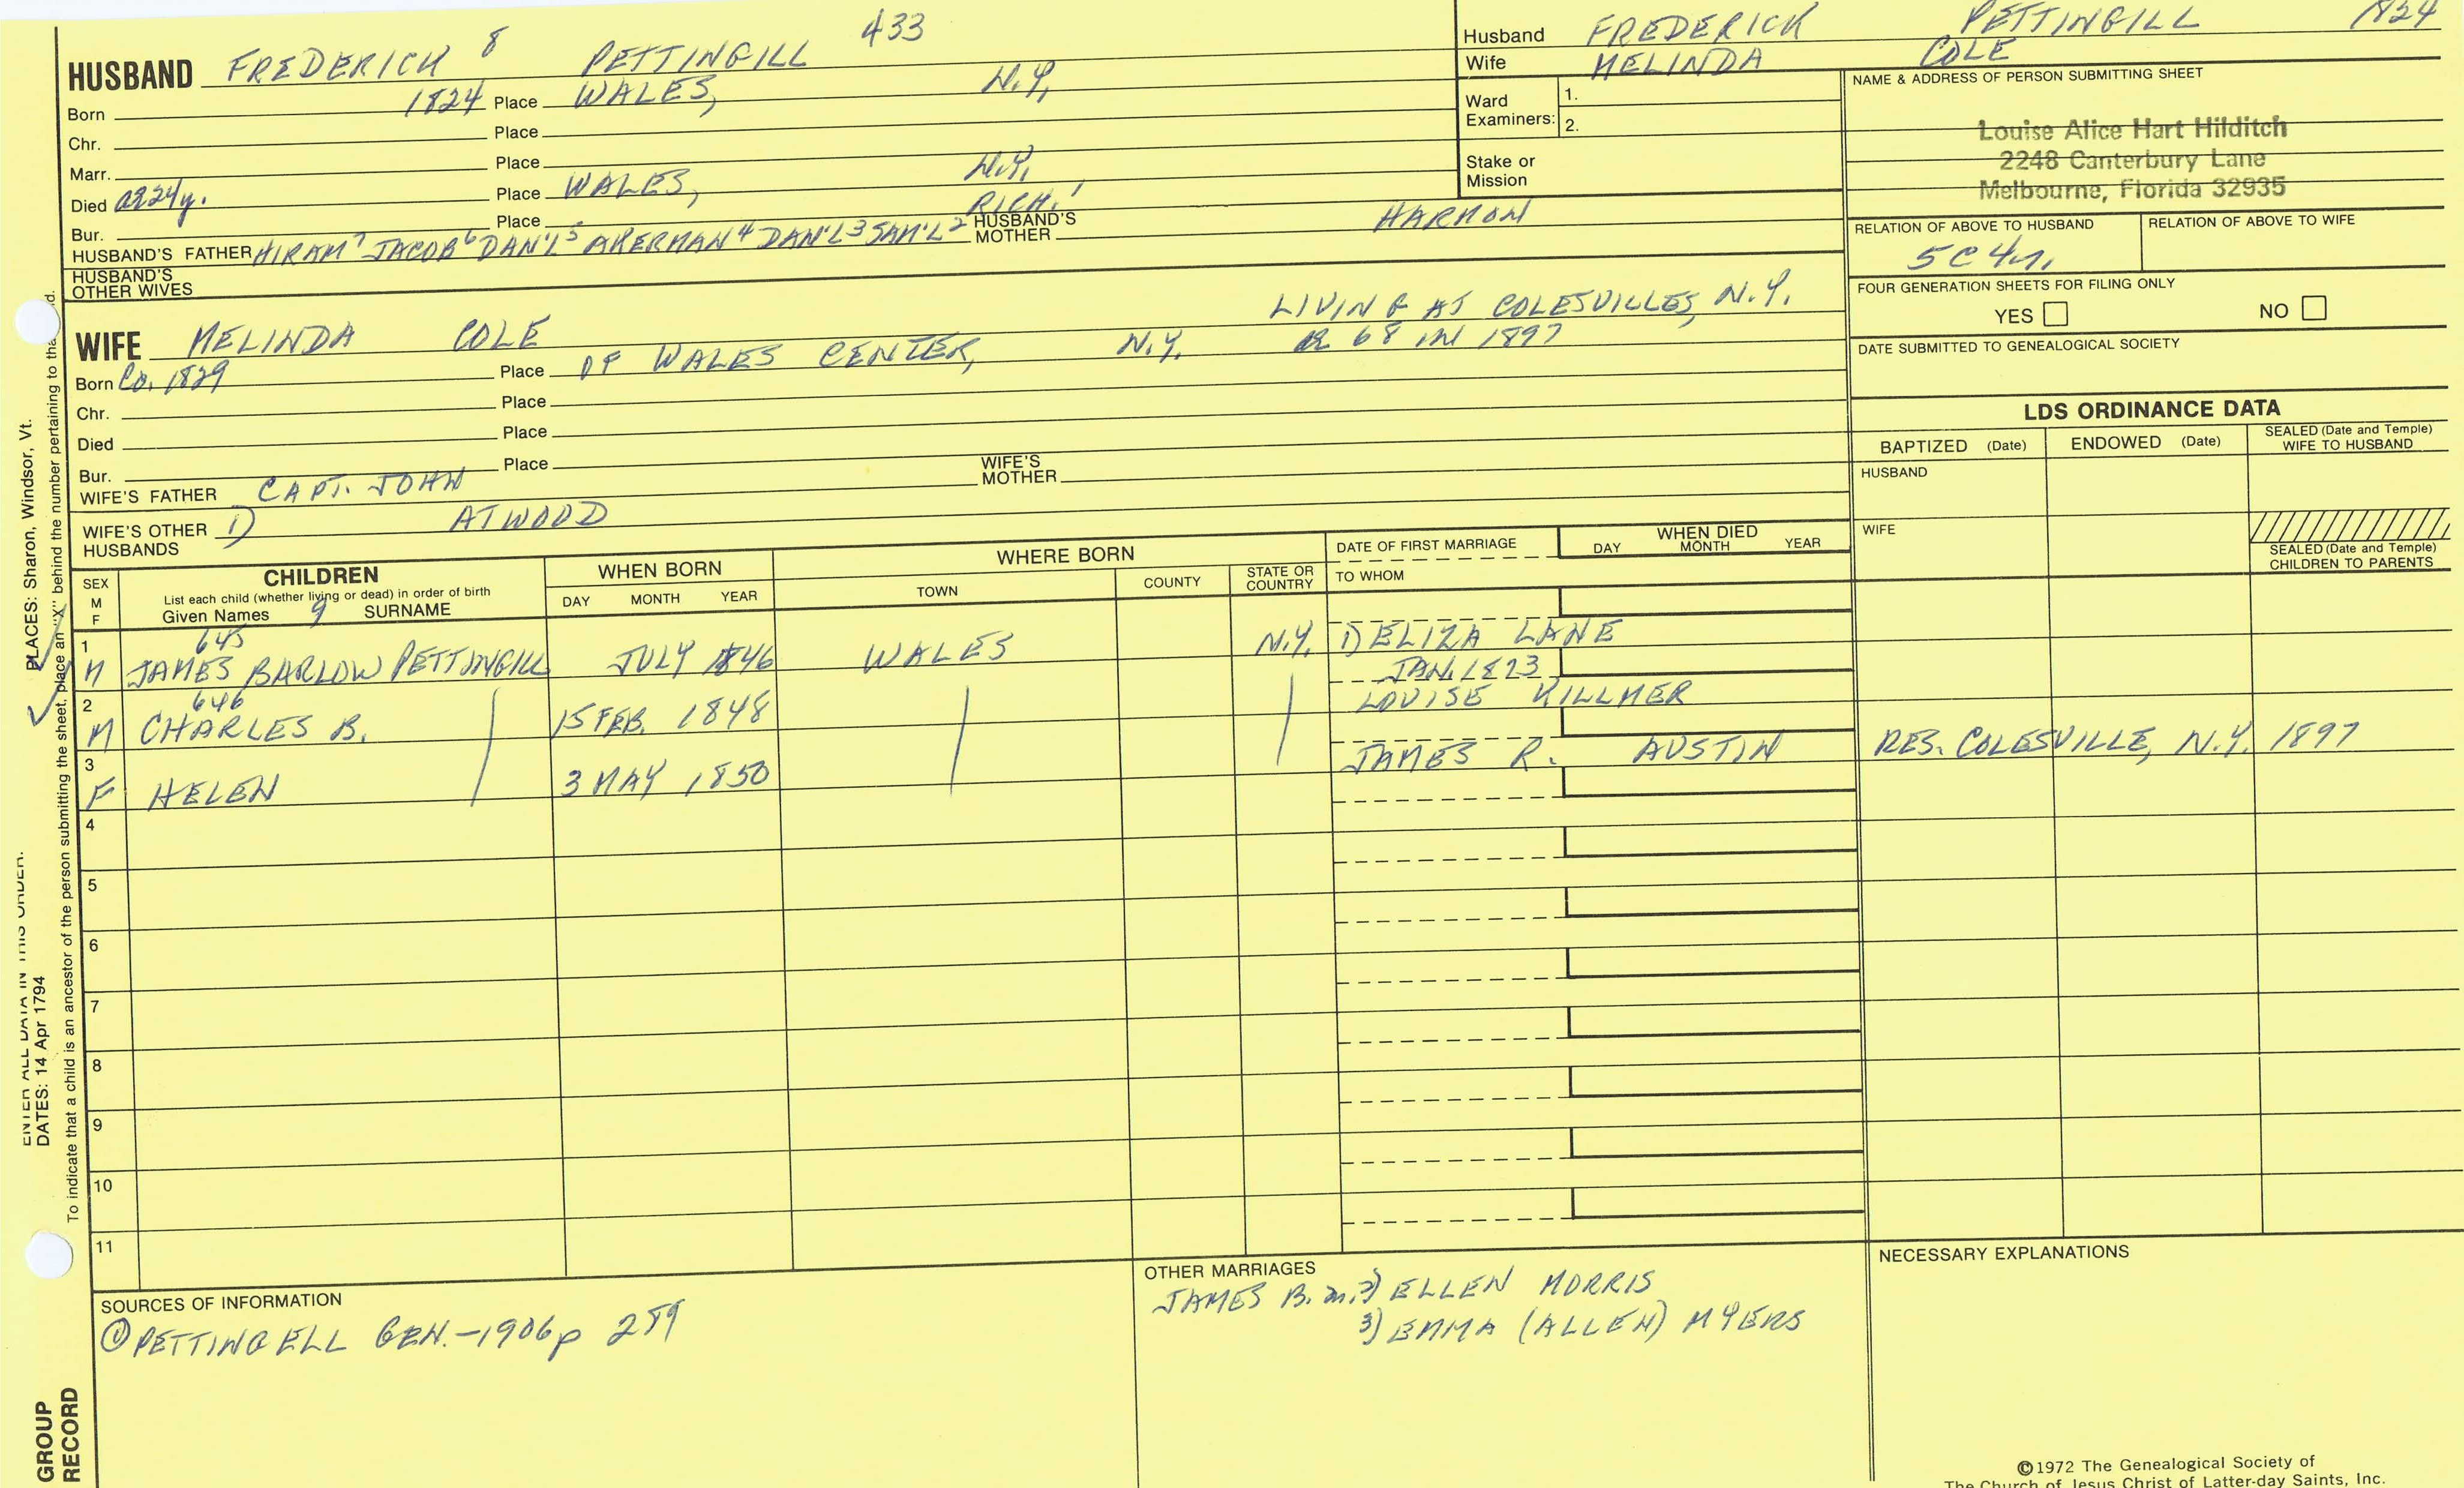 433
HUSBAND FREDERICK 8 PETTINGILL
Born 1824 Place WALES, N.Y.
Chr. Place
Marr. Place
Died ae 24y. Place WALES, N.Y.
Bur. Place
HUSBAND'S FATHER HIRAM 7 JACOB 6 DAN'L 5 AKERMAN 4 DAN'L 3 SAM'L 2 RICH. 1 HUSBAND'S MOTHER HARMON
HUSBAND'S OTHER WIVES
WIFE MELINDA COLE
LIVING AT COLESVILLES, N.Y.
AE 68 IN 1897
Born Ca. 1829 Place OF WALES CENTER, N.Y.
Chr. Place
Died Place
Bur. Place
WIFE'S FATHER CAPT. JOHN WIFE'S MOTHER
WIFE'S OTHER HUSBANDS 1) ATWOOD
Husband FREDERICK PETTINGILL 1824
Wife MELINDA COLE
Ward Examiners: 1.
2.
Stake or Mission
NAME & ADDRESS OF PERSON SUBMITTING SHEET
Louise Alice Hart Hilditch
2248 Canterbury Lane
Melbourne, Florida 32935
RELATION OF ABOVE TO HUSBAND RELATION OF ABOVE TO WIFE
5C4r.
FOUR GENERATION SHEETS FOR FILING ONLY
YES NO
DATE SUBMITTED TO GENEALOGICAL SOCIETY
LDS ORDINANCE DATA
BAPTIZED (Date) ENDOWED (Date) SEALED (Date and Temple) WIFE TO HUSBAND
HUSBAND
WIFE
SEALED (Date and Temple) CHILDREN TO PARENTS
SEX M F
CHILDREN
List each child (whether living or dead) in order of birth
Given Names 9 SURNAME
WHEN BORN
DAY MONTH YEAR
WHERE BORN
TOWN COUNTY STATE OR COUNTRY
DATE OF FIRST MARRIAGE
TO WHOM
WHEN DIED
DAY MONTH YEAR
645
1 M JAMES BARLOW PETTINGILL JULY 1846 WALES N.Y. 1) ELIZA LANE
JAN. 1873
646
2 M CHARLES B. 15 FEB. 1848 LOUISE KILLMER
3 F HELEN 3 MAY 1850 JAMES R. AUSTIN RES. COLESVILLE, N.Y. 1897
4
5
6
7
8
9
10
11
SOURCES OF INFORMATION
① PETTINGELL GEN.-1906 p 259
OTHER MARRIAGES
JAMES B. m. 2) ELLEN MORRIS
3) EMMA (ALLEN) MYERS
NECESSARY EXPLANATIONS
©1972 The Genealogical Society of
The Church of Jesus Christ of Latter-day Saints, Inc.
ENTER ALL DATA IN THIS ORDER.
DATES: 14 Apr 1794 PLACES: Sharon, Windsor, Vt.
To indicate that a child is an ancestor of the person submitting the sheet, place an "X" behind the number pertaining to tha
d.
GROUP
RECORD